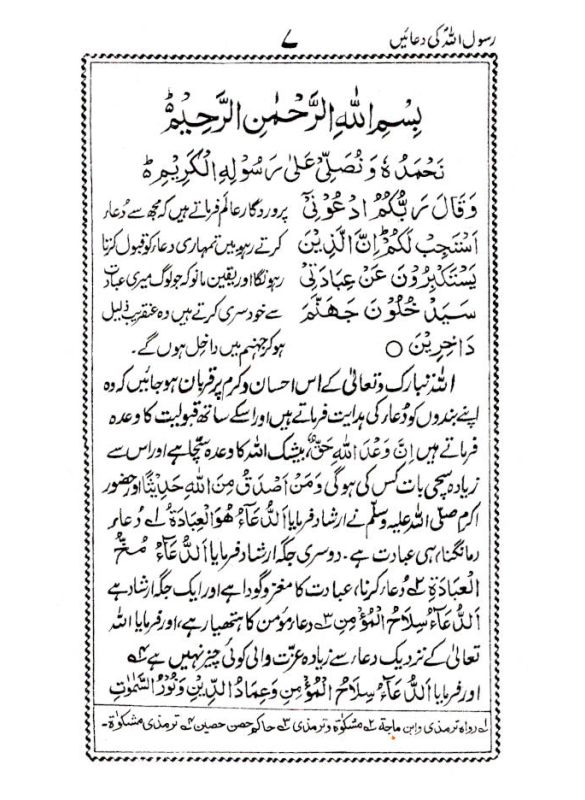 رسول اللہؐ کی دعائیں
۷
بِسْمِ اللهِ الرَّحْمٰنِ الرَّحِيْمِ ط
نَحْمَدُهٗ وَنُصَلِّیْ عَلٰی رَسُوْلِهِ الْكَرِيْمِ ط
وَقَالَ رَبُّكُمُ ادْعُوْنِیْ
اَسْتَجِبْ لَكُمْ ط اِنَّ الَّذِيْنَ
يَسْتَكْبِرُوْنَ عَنْ عِبَادَتِیْ
سَيَدْخُلُوْنَ جَهَنَّمَ
دَاخِرِيْنَ ○
پروردگار عالم فرماتے ہیں کہ مجھ سے دُعار
کرتے رہو میں تمہاری دعار کو قبول کرتا
رہونگا اور یقین مانو کہ جو لوگ میری عبادت
سے خود سری کرتے ہیں وہ عنقریب ذلیل
ہوکر جہنم میں داخل ہوں گے۔
اللہ تبارک وتعالیٰ کے اس احسان وکرم پر قربان ہو جائیں کہ وہ
اپنے بندوں کو دُعار کی ہدایت فرماتے ہیں اور اسکے ساتھ قبولیت کا وعدہ
فرماتے ہیں اِنَّ وَعْدَ اللهِ حَقٌّ، بیشک اللہ کا وعدہ سچا ہے اور اس سے
زیادہ سچی بات کس کی ہوگی وَمَنْ اَصْدَقُ مِنَ اللهِ حَدِيْثًا اور حضور
اکرم صلی اللہ علیہ وسلم نے ارشاد فرمایا اَلدُّعَآءُ هُوَ الْعِبَادَةُ ۱ دُعار
(مانگنا) ہی عبادت ہے۔ دوسری جگہ ارشاد فرمایا اَلدُّعَآءُ مُخُّ
الْعِبَادَةِ ۲ دُعار کرنا، عبادت کا مغز و گودا ہے اور ایک جگہ ارشاد ہے
اَلدُّعَآءُ سِلَاحُ الْمُؤْمِنِ ۳ دعار مؤمن کا ہتھیار ہے، اور فرمایا اللہ
تعالیٰ کے نزدیک دعار سے زیادہ عزّت والی کوئی چیز نہیں ہے ۴
اور فرمایا اَلدُّعَآءُ سِلَاحُ الْمُؤْمِنِ وَعِمَادُ الدِّيْنِ وَنُوْرُ السَّمٰوٰتِ
۱ رواہ ترمذی وابن ماجۃ ۲ مشکوٰۃ وترمذی ۳ حاکم حصن حصین ۴ ترمذی مشکوٰۃ۔